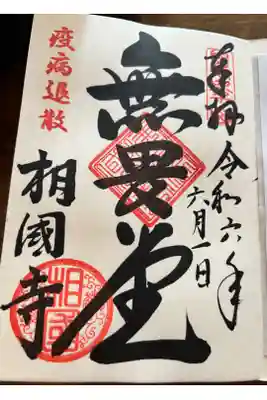 奉拝 令和六年
六月一日
無畏堂
疫病退散
相國寺